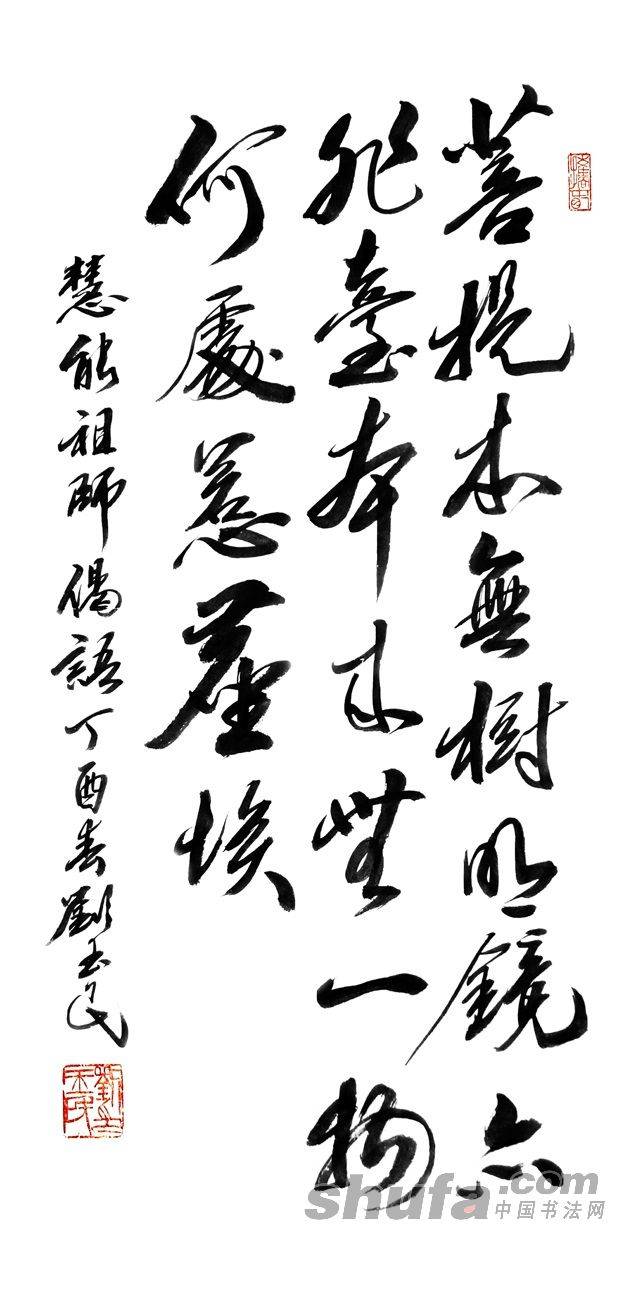 菩提本無樹明鏡亦
非臺本來無一物
何處惹塵埃
慧能祖師偈語丁酉春劉玉民
shufa.com
中国书法网